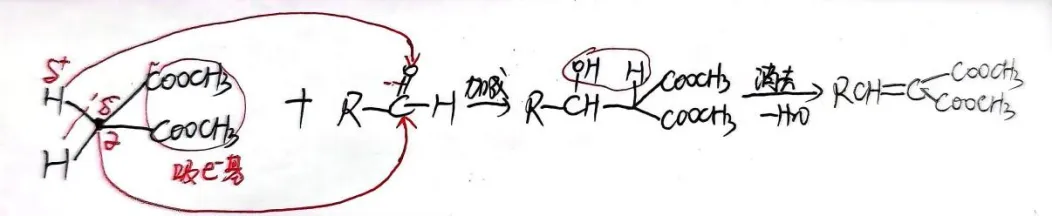 δ+ H COOCH3 δ- 2 COOCH3 H 吸e-基
+
R-C-H O 加成
R-CH OH H COOCH3 COOCH3 消去 -H2O
RCH=C COOCH3 COOCH3